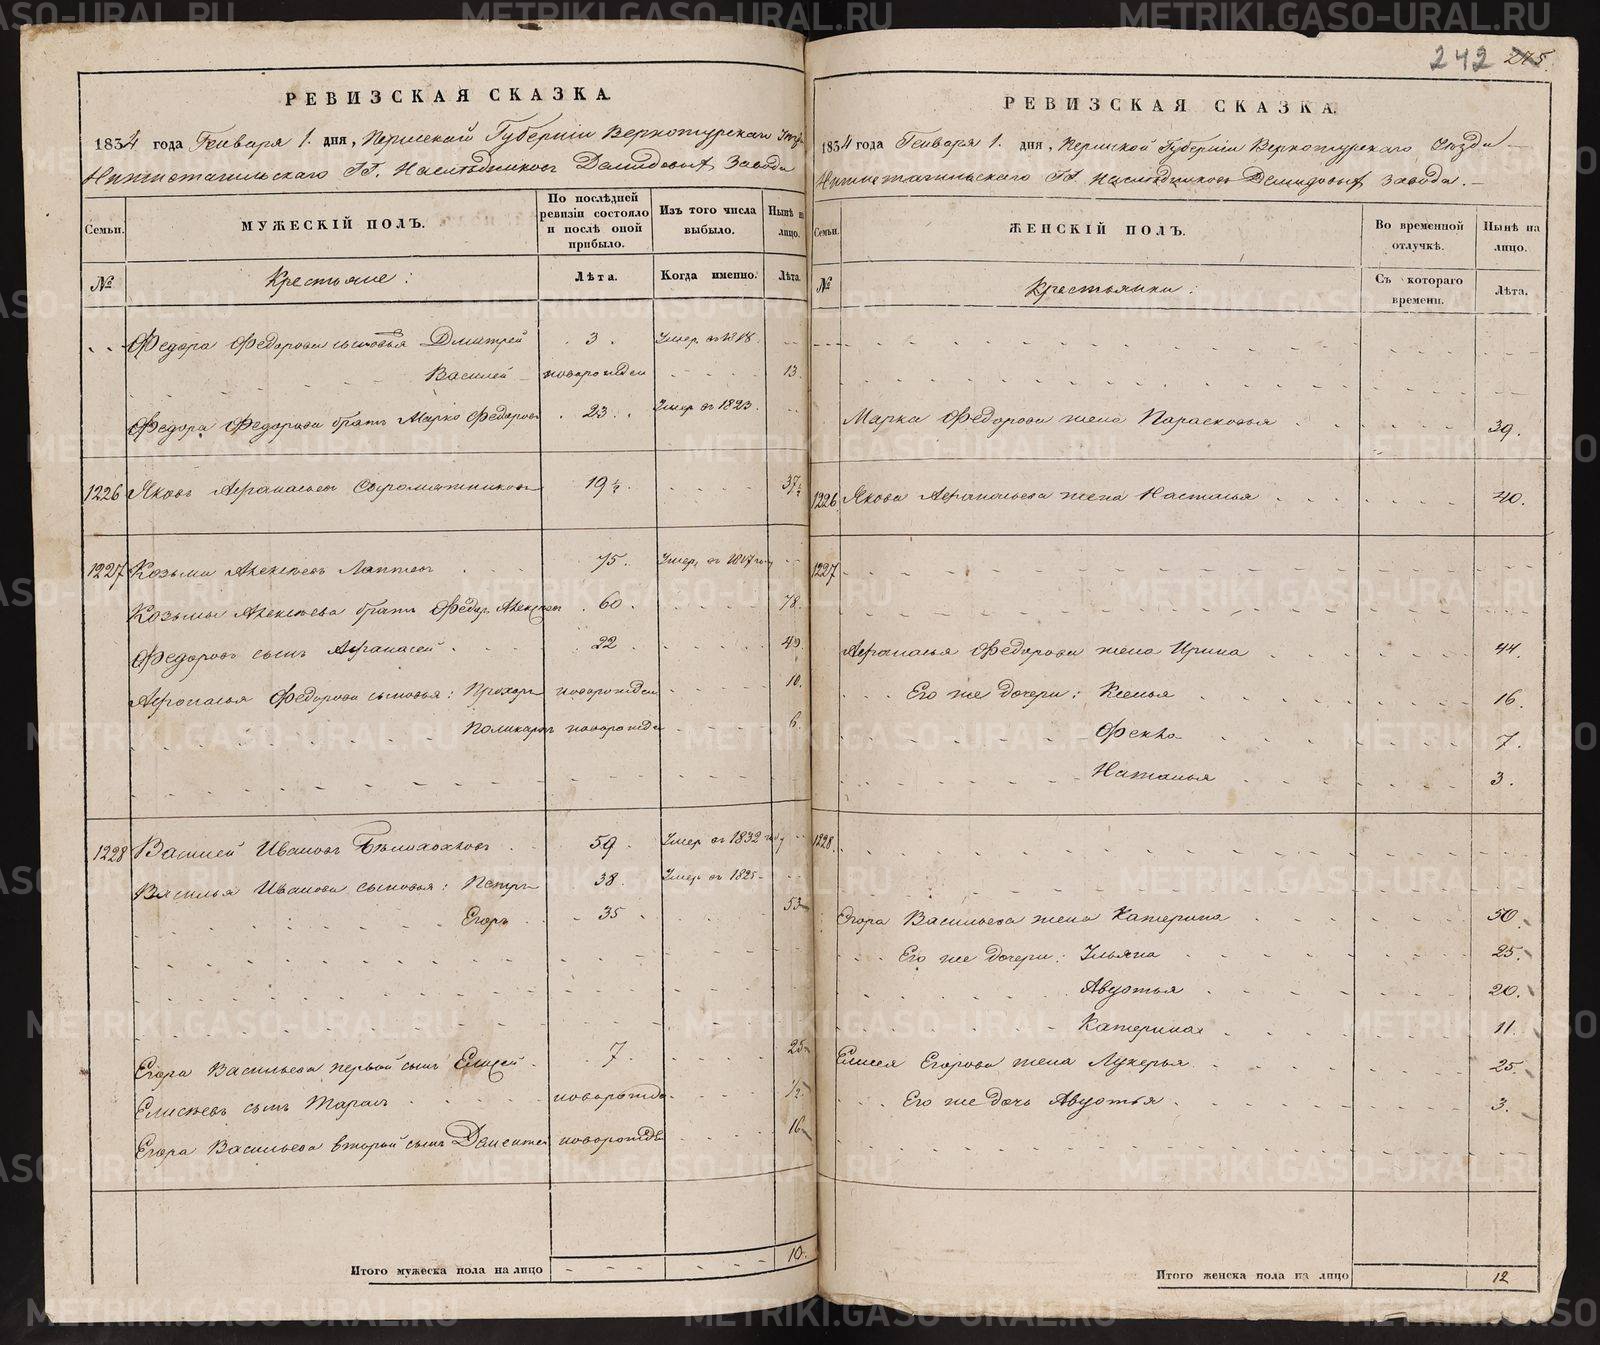 242 275.
РЕВИЗСКАЯ СКАЗКА.
1834 года Генваря 1. дня, Пермской Губернiи Верхотурскаго Уезда
Нижнетагильскаго ГГ. Наследниковъ Демидовыхъ Завода
Семьи.
МУЖЕСКIЙ ПОЛЪ.
По послѣдней ревизiи состояло и послѣ оной прибыло.
Изъ того числа выбыло.
Нынѣ на лицо.
№
Крестьяне:
Лѣта.
Когда именно.
Лѣта.
Федора Федорова сыновья Дмитрей 3. Умер. въ 1818.
Василей новорожден 13.
Федора Федорова братъ Марко Федоровъ 23. Умер въ 1823.
1226 Яковъ Афанасьевъ Сыромятниковъ 19½. 37½
1227 Козьма Алексѣевъ Лаптевъ 75. Умер. въ 1817 году
Козьмы Алексѣева братъ Федор. Алексѣев 60. 78.
Федоровъ сынъ Афанасей 22 40.
Афонасья Федорова сыновья: Прохоръ новорожден 10.
Поликарпъ новорожде 6.
1228 Василей Ивановъ 59. Умер въ 1832 году
Василья Иванова сыновья: Петръ 38. Умер. въ 1825
Егоръ 35 53
Егора Васильева первой сынъ Елисей 7. 25
Елисѣевъ сынъ Тарасъ новорожде. ½.
Егора Васильева второй сынъ Дементей новорожде 16
Итого мужеска пола на лицо 10.
РЕВИЗСКАЯ СКАЗКА.
1834 года Генваря 1. дня, Пермской Губернiи Верхотурскаго Уезда
Нижнетагильскаго ГГ. Наследниковъ Демидовыхъ Завода.
Семьи.
ЖЕНСКIЙ ПОЛЪ.
Во временной отлучкѣ.
Нынѣ на лицо.
№
Крестьянки:
Съ котораго времени.
Лѣта.
Марка Федорова жена Парасковья 39.
1226 Якова Афанасьева жена Настасья 40.
1227
Афанасья Федорова жена Ирина 44.
Его же дочери: Ксенья 16
Фекла 7.
Наталья 3.
1228.
Егора Васильева жена Катерина 50.
Его же дочери: Ульяна 25.
Авдотья 20.
Катерина 11.
Елисея Егорова жена Лукерья 25.
Его же дочь Авдотья 3.
Итого женска пола на лицо 12
METRIKI.GASO-URAL.RU